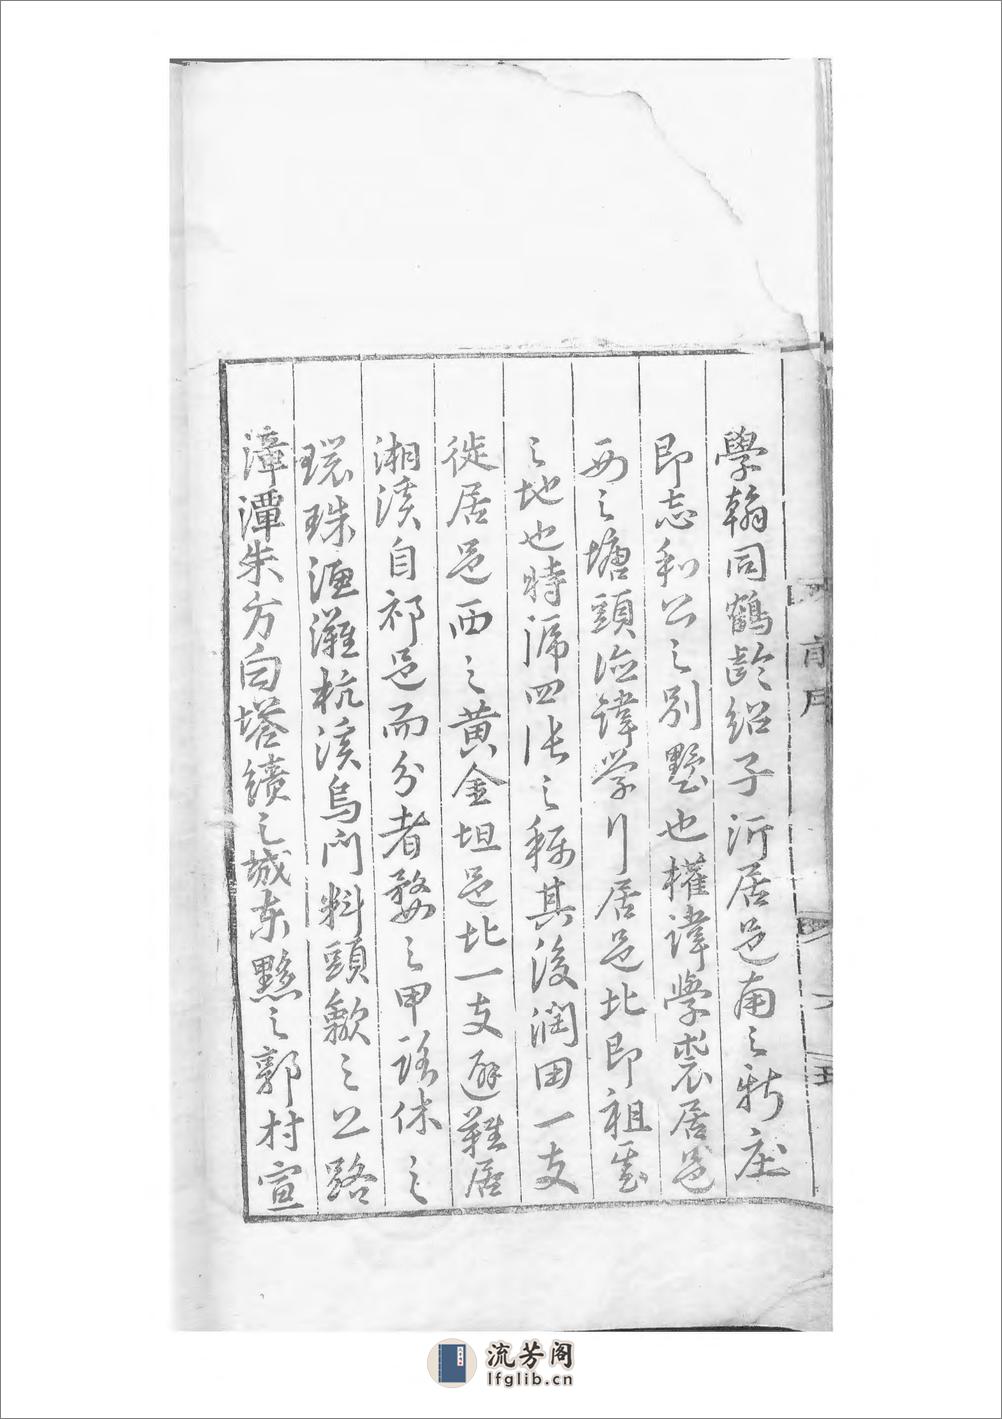 學翰同鶴齡紹子沂居邑南之新庄
即志和公之別墅也權諱學裘居邑
西之塘頭浍諱学川居邑北即祖基
之地也時號四張之称其後潤田一支
徙居邑西之黄金坦邑北一支避難居
湘溪自祁邑而分者婺之甲路休之
環珠灘杭溪烏門料頭歙之公路
漳潭朱方白塔績之城东黟之郭村宣
流芳阁
lfglib.cn